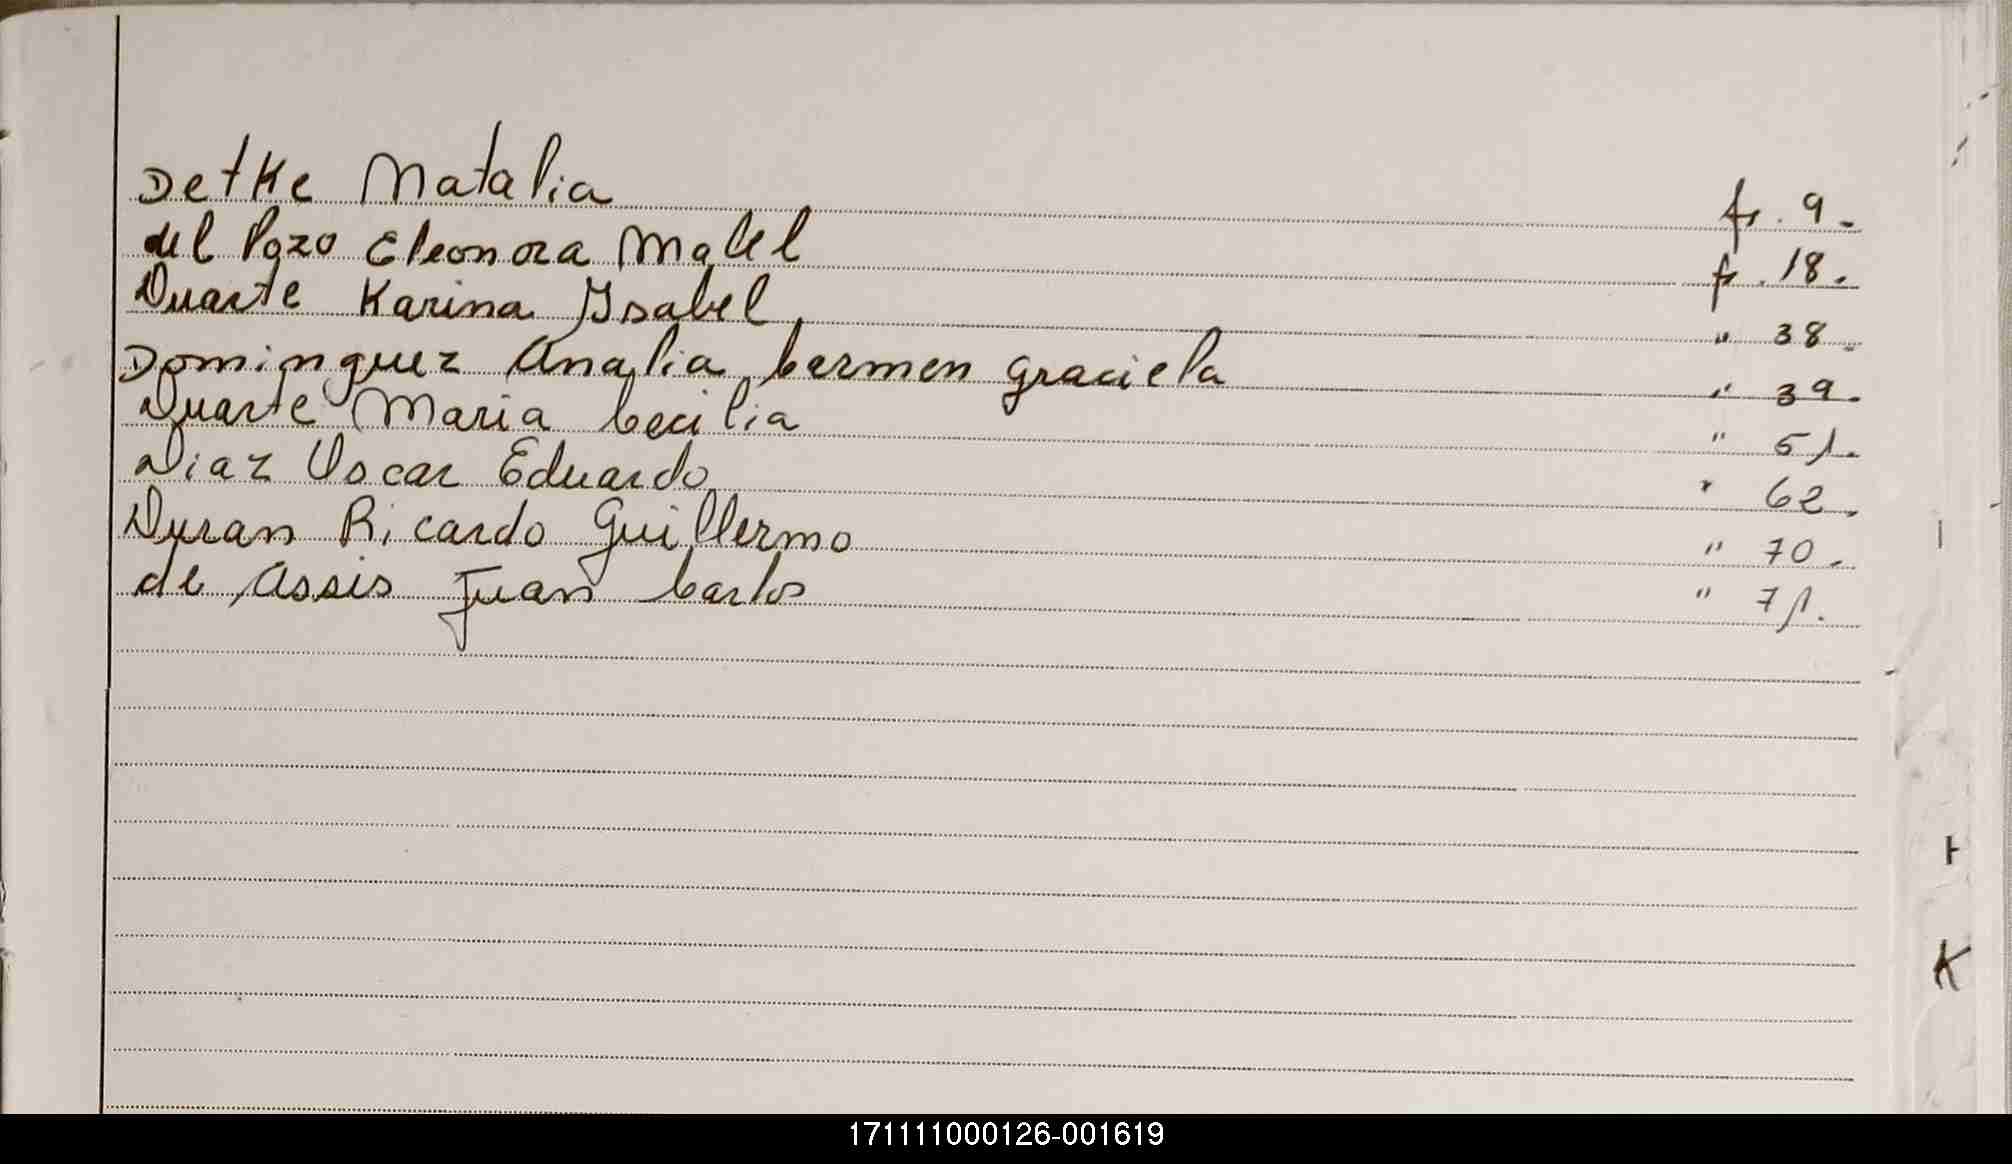 Detke Natalia fr. 9.
del Pozo Eleonora Mabel fr. 18.
Duarte Karina Ysabel " 38.
Dominguez Analia Carmen Graciela " 39.
Duarte Maria Cecilia " 51.
Diaz Oscar Eduardo " 62.
Duran Ricardo Guillermo " 70.
de Assis Juan Carlos " 71.
K
171111000126-001619